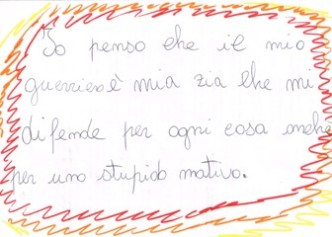 Io penso che il mio
guerriero è mia zia che mi
difende per ogni cosa anche
per uno stupido motivo.